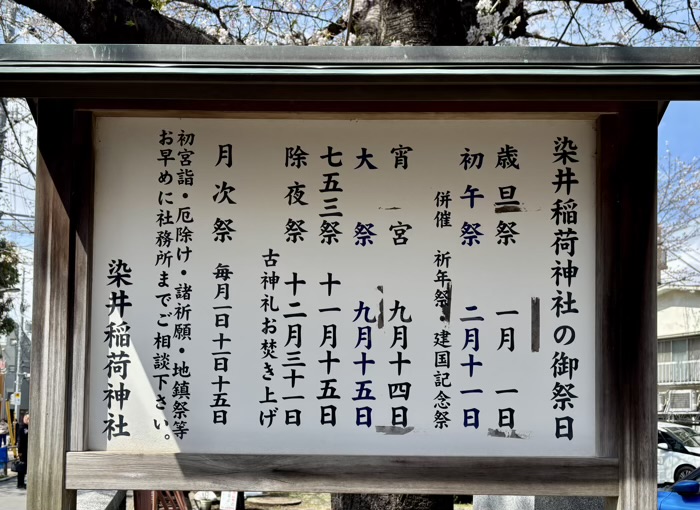 染井稲荷神社の御祭日
歳旦祭 一月 一日
初午祭 二月十一日
併催 祈年祭・建国記念祭
宵宮 九月十四日
大祭 九月十五日
七五三祭 十一月十五日
除夜祭 十二月三十一日
古神礼お焚き上げ
月次祭 毎月一日十一日十五日
初宮詣・厄除け・諸祈願・地鎮祭等
お早めに社務所までご相談下さい。
染井稲荷神社